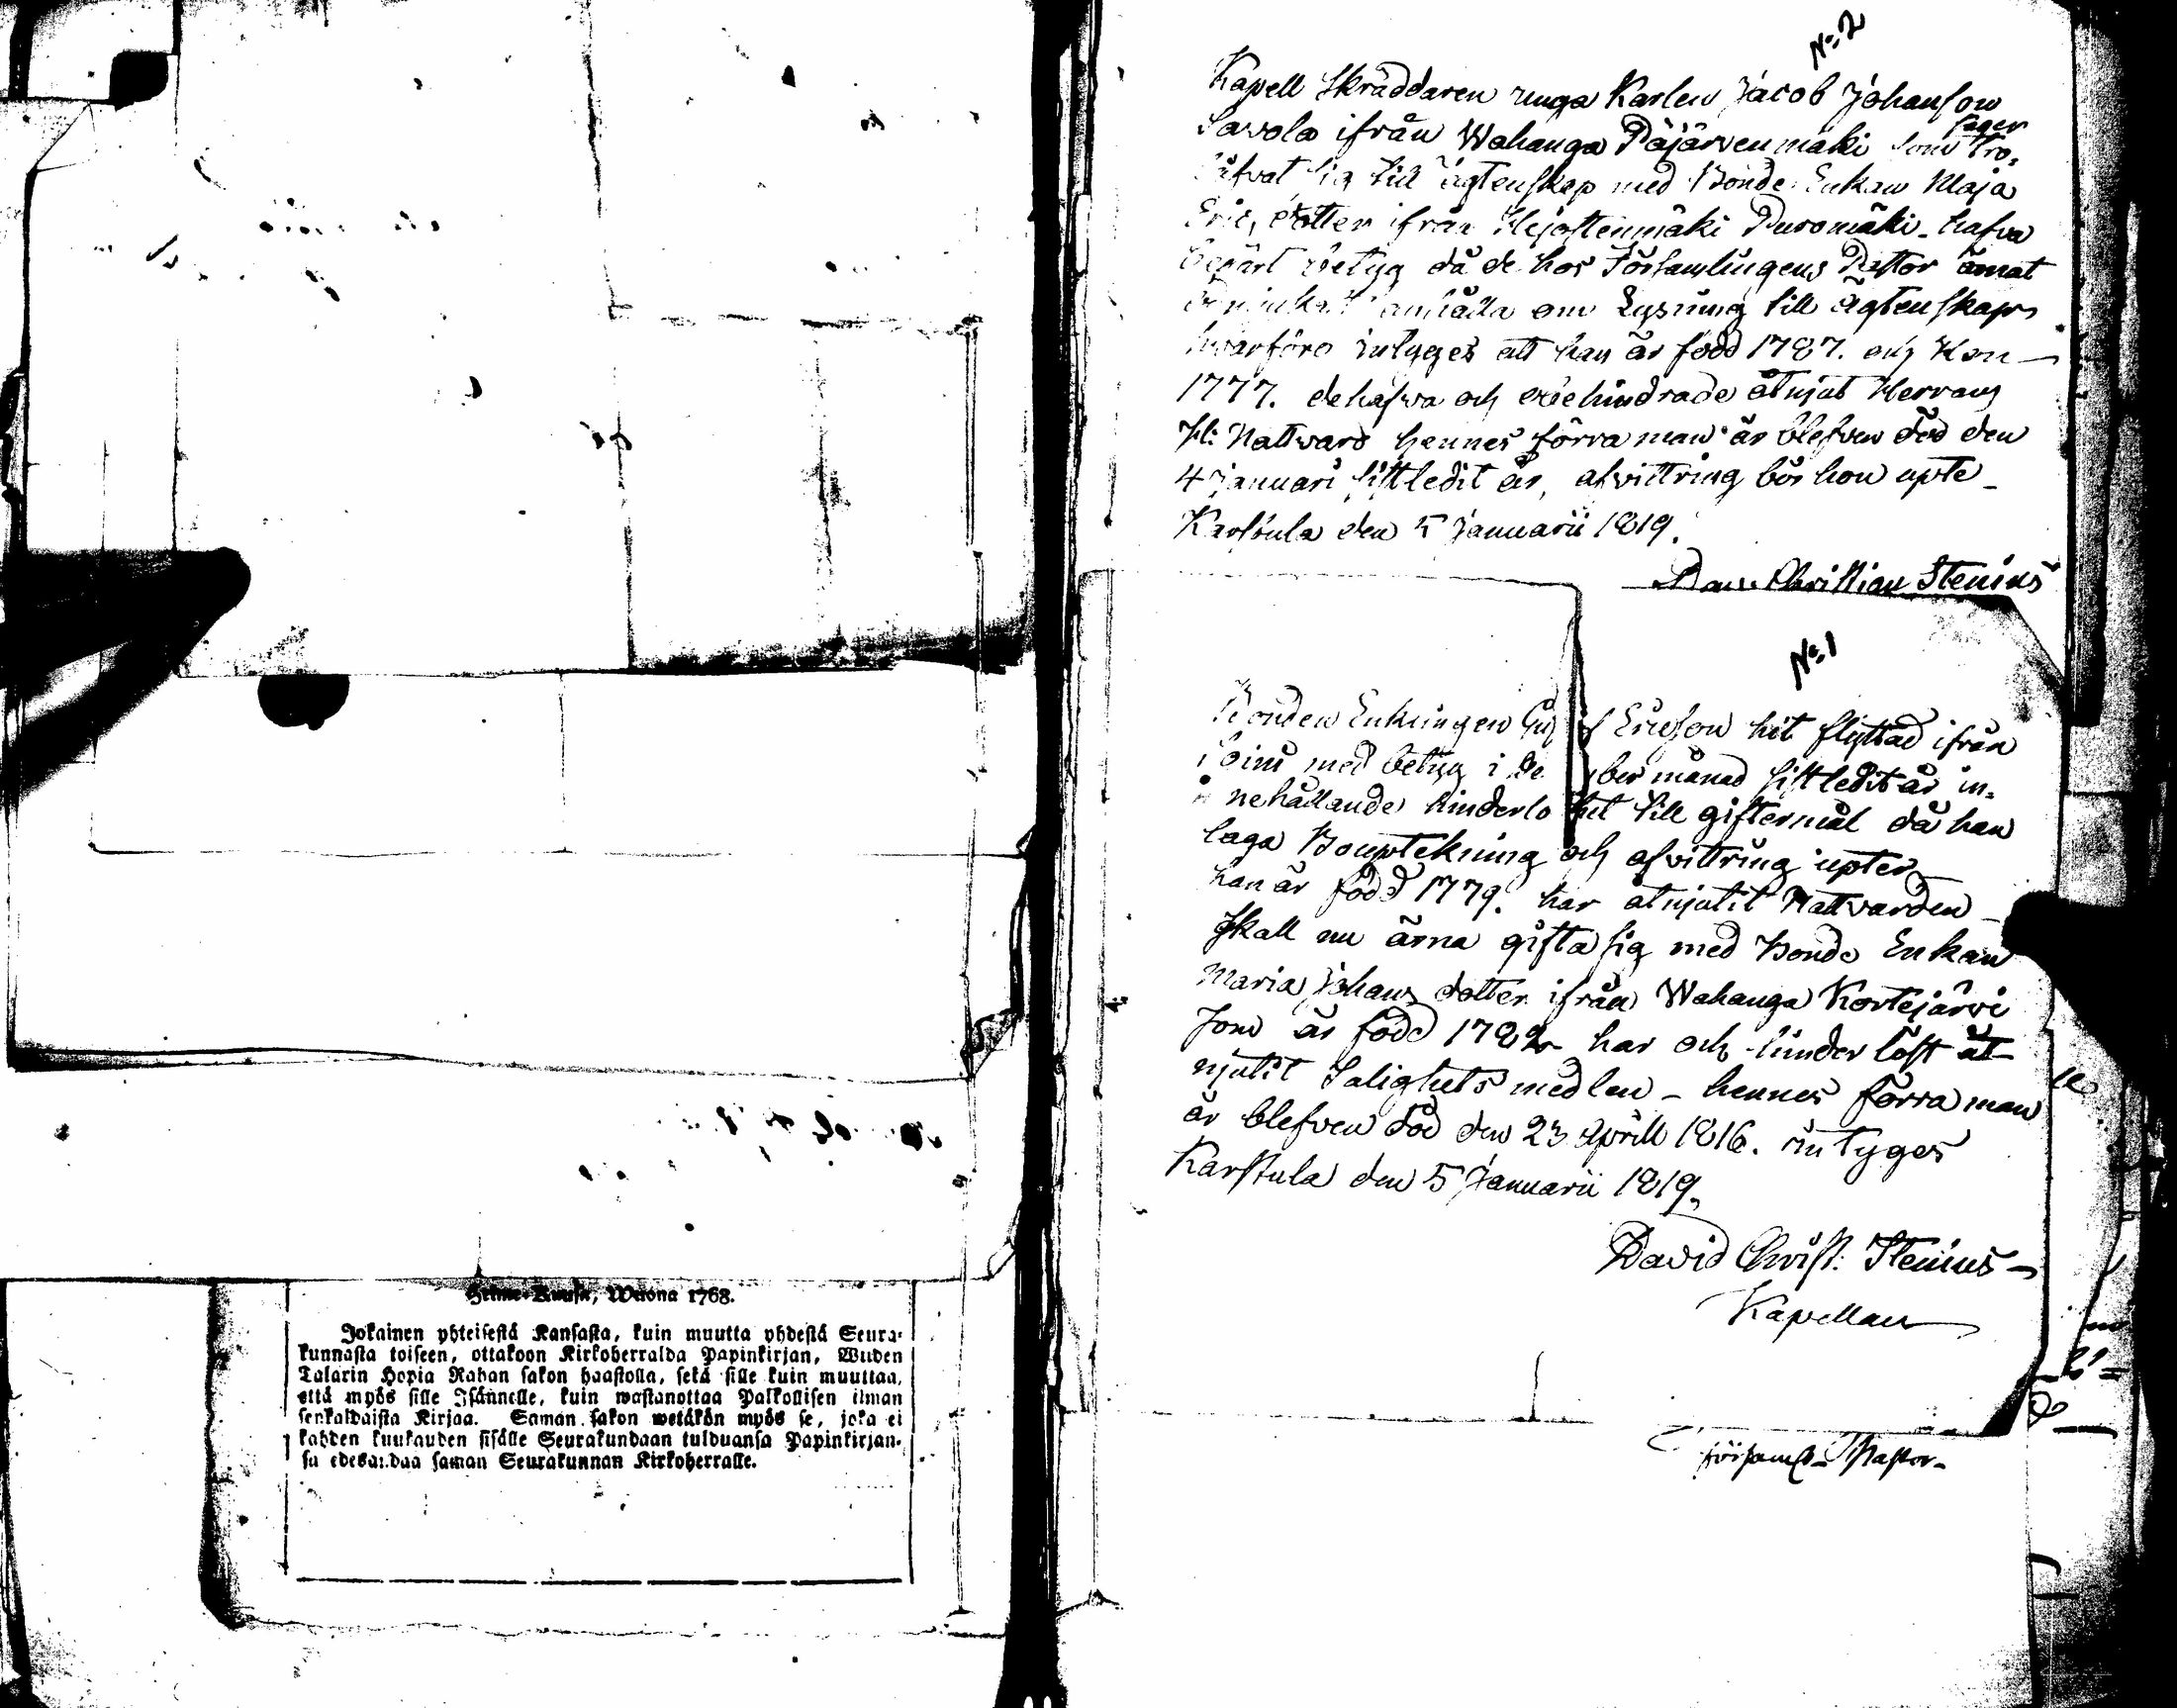 Helme-Kuusa, Wuona 1768.
Jokainen yhteisestä Kansasta, kuin muutta yhdestä Seura-
kunnasta toiseen, ottakoon Kirkoherralda Papinkirjan, Wiiden
Talarin Hopia Rahan sakon haastolla, sekä sille kuin muuttaa,
että myös sille Isännelle, kuin wastanottaa Palkollisen ilman
senkaldaista Kirjaa. Saman sakon wetäkön myös se, joka ei
kahden kuukauden sisälle Seurakundaan tulduansa Papinkirjan-
sa edesandaa saman Seurakunnan Kirkoherralle.
No 2
Kapell Skräddaren unga Karlen Jacob Johanson
Savola ifrån Wahanga Pääjärvenmäki som säger tro-
låfvat sig till ägtenskap med Bonde Enkan Maja
Eric, dotter ifrån Puromäki - hafva
begärt betyg då de hos Församlingens Pastor ämat
anhålla om Lysning till ägtenskap
hvarföre intyges att han är född 1787. och Hon -
1777. de hafva och obehindrade åtnjut Herrans
H: Nattvard hennes förra man är blefven död den
4 januari sistledit år, afvittring bör hon upte -
Karstula den 5 Januarii 1819.
Dav. Christian Stenius
No 1
Bonden Enklingen Ericson hit flyttad ifrån
med betyg i ber månad sistledit år in-
nehållande hinderlöshet till giftermål då han
laga Bouptekning och afvittring upter
han är född 1779. har åtnjutit Nattvarden -
skall nu ärna gifta sig med Bonde Enkan
Maria Johans dotter ifrån Wahanga Kortejärvi
som är född 1782 har och hinderlöst åt-
njutit Salighets medlen - hennes förra man
är blefven död den 23 Aprill 1816. intyges
Karstula den 5 Januarii 1819.
David Christ: Stenius -
Kapellan
Församl- Pastor-